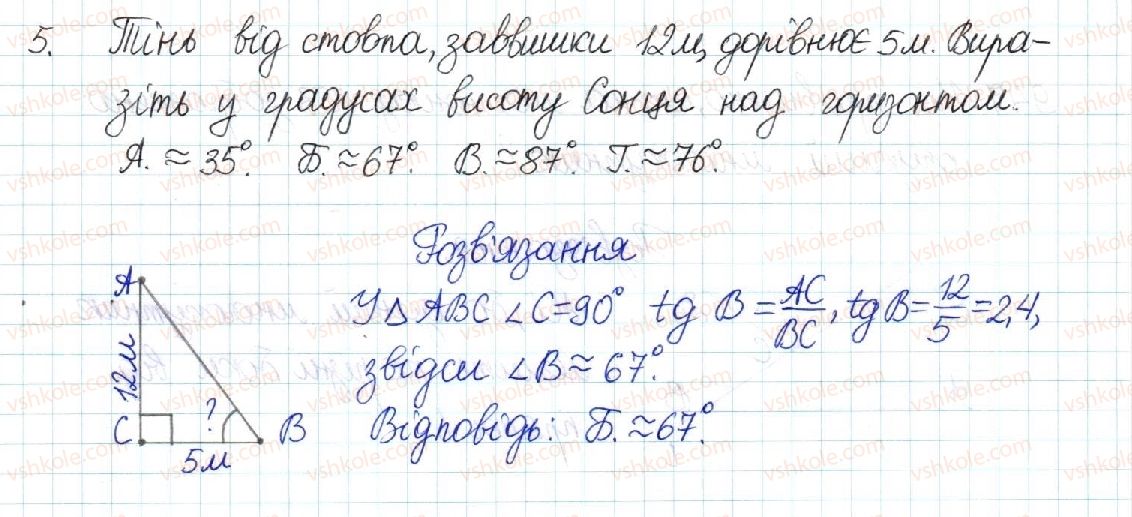 5. Тінь від стовпа, заввишки 12м, дорівнює 5м. Вира-
зіть у градусах висоту Сонця над горизонтом.
А. ≈ 35°. Б. ≈ 67°. В. ≈ 87°. Г. ≈ 76°.
Розв'язання
У △ ABC ∠C=90° tg B = AC/BC, tg B = 12/5 = 2,4,
звідси ∠B ≈ 67°.
Відповідь: Б. ≈ 67°.
A
12м
C ? B
5м
vshkole.com